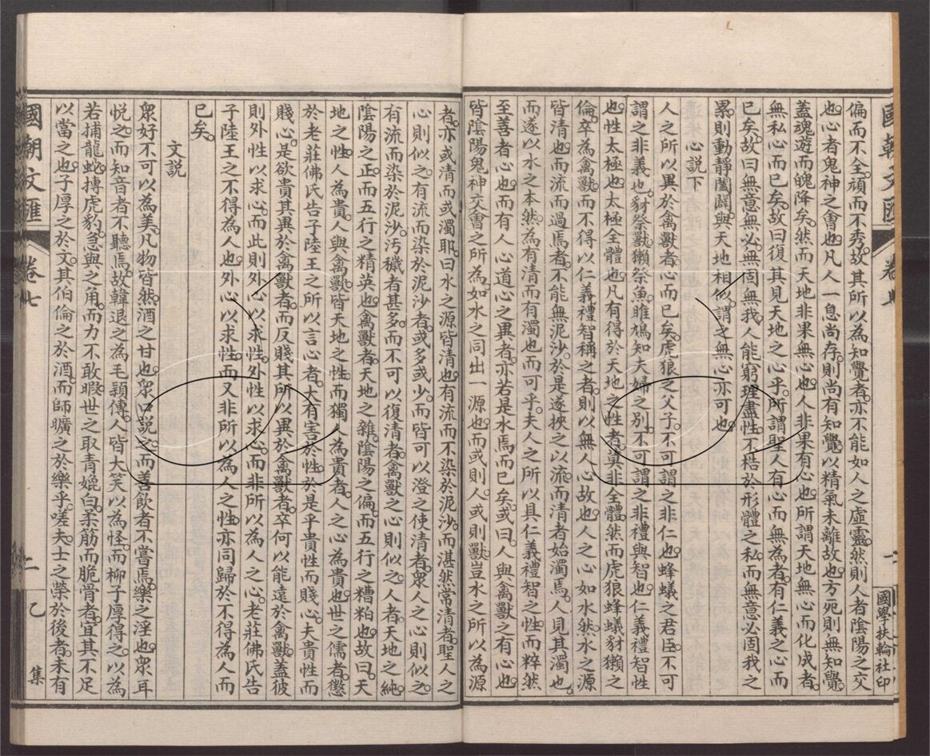 偏而不全頑而不秀故其所以為知覺者亦不能如人之虛靈然則人者陰陽之交
也心者鬼神之會也凡人一息尚存則尚有知覺以精氣未離故也方死則無知覺
蓋魂遊而魄降矣然而天地非果無心也人非果有心也所謂天地無心而化成者
無私心而已矣故曰復其見天地之心乎所謂聖人有心而無為者有仁義之心而
已矣故曰無意無必無固無我人能窮理盡性不梏於形體之私而無意必固我之
累則動靜闔闢與天地相似謂之無心亦可也
心說下
人之所以異於禽獸者心而已矣虎狼之父子不可謂之非仁也蜂蟻之君臣不可
謂之非義也豺祭獸獺祭魚雎鳩知夫婦之別不可謂之非禮與智也仁義禮智性
也性太極也太極全體也凡有得於天地之性者莫非全體然而虎狼蜂蟻豺獺之
倫卒為禽獸而不得以仁義禮智稱之者則以無人心故也人之心如水然水之源
皆清也而流而過焉者不能無泥沙於是遂挾之以流而清者始濁焉人見其濁也
而遂以水之本然為有清而有濁也而可乎夫人之所以具仁義禮智之性而粹然
至善者心也而有人心道心之異者亦若是水焉而已矣或曰人與禽獸之有心也
皆陰陽鬼神交會之所為如水之同出一源也而或則人或則獸豈水之所以為源
者亦或清而或濁耶曰水之源皆清也有流而不染於泥沙而湛然常清者聖人之
心則似之有流而染於泥沙者或多或少而皆可以澄之使清者衆人之心則似之
有流而染於泥沙汚穢者甚多而不可以復清者禽獸之心則似之人者天地之純
陰陽之正而五行之精英也禽獸者天地之雜陰陽之偏而五行之糟粕也故曰天
地之性人為貴人與禽獸皆天地之性而獨人為貴者人之心為貴也世之儒者懲
於老莊佛氏告子陸王之所以言心者大有害於性於是乎貴性而賤心夫貴性而
賤心是欲貴其異於禽獸者而反賤其所以異於禽獸者卒何以能遠於禽獸蓋彼
則外性以求心而此則外心以求性外性以求心而非所以為人之心老莊佛氏告
子陸王之不得為人也外心以求性而又非所以為人之性亦同歸於不得為人而
已矣
文說
衆好不可以為美凡物皆然酒之甘也衆口說之而善飲者不嘗焉樂之淫也衆耳
悅之而知音者不聽焉故韓退之為毛穎傳人皆大笑以為怪而柳子厚得之以為
若捕龍蛇搏虎豹急與之角而力不敢暇世之取青媲白柔筋而脆骨者宜其不足
以當之也子厚之於文其伯倫之於酒而師曠之於樂乎嗟夫士之榮於後者未有
國朝文匯 卷七
二
乙集
國學扶輪社印